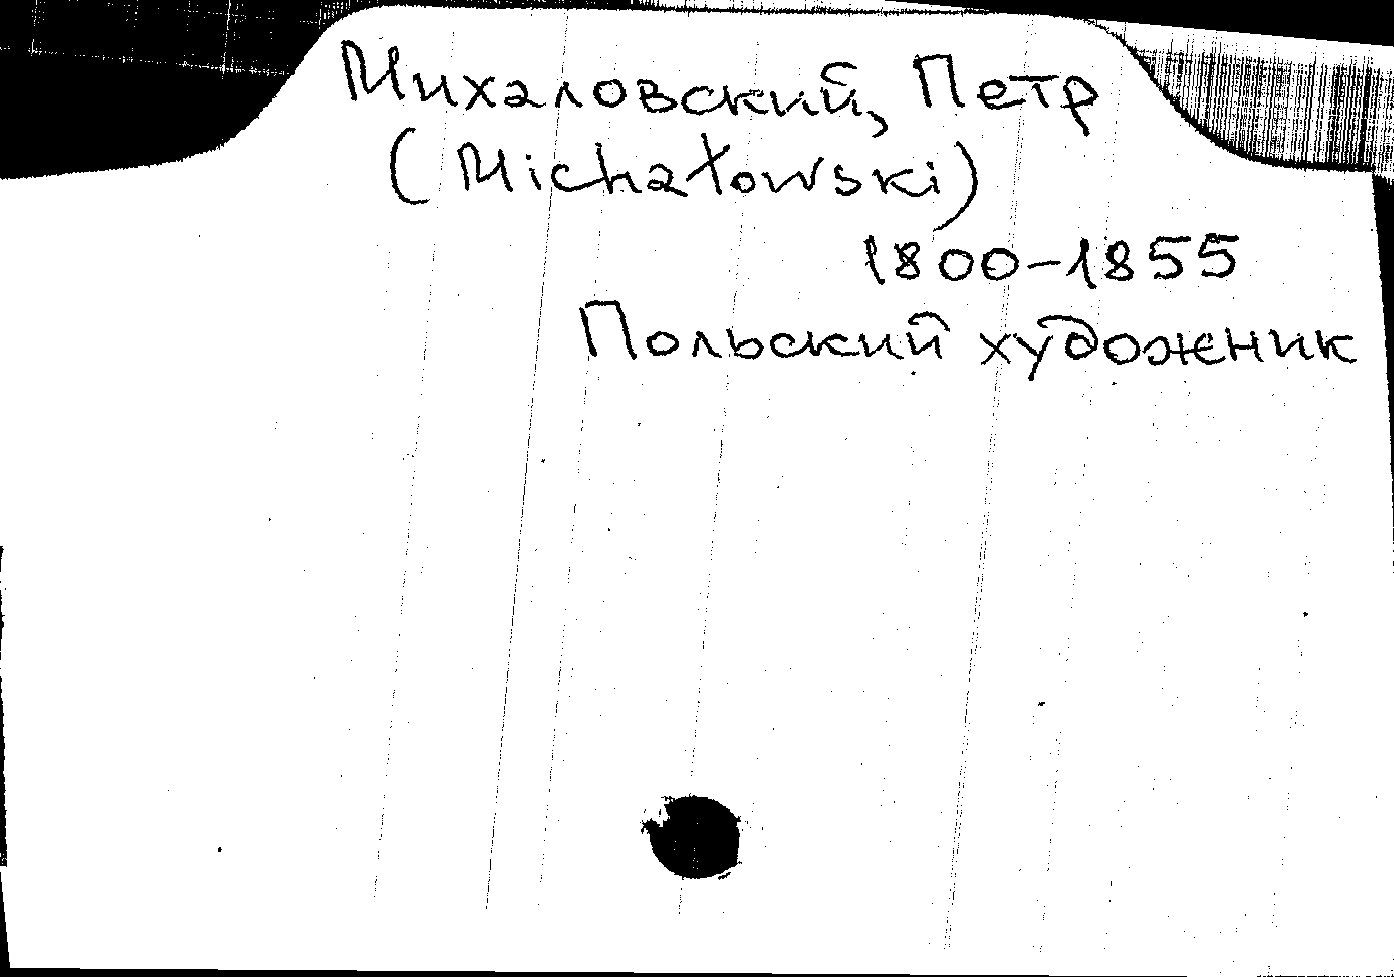 Михаловский, Петр
(Michałowski)
1800-1855
Польский художник